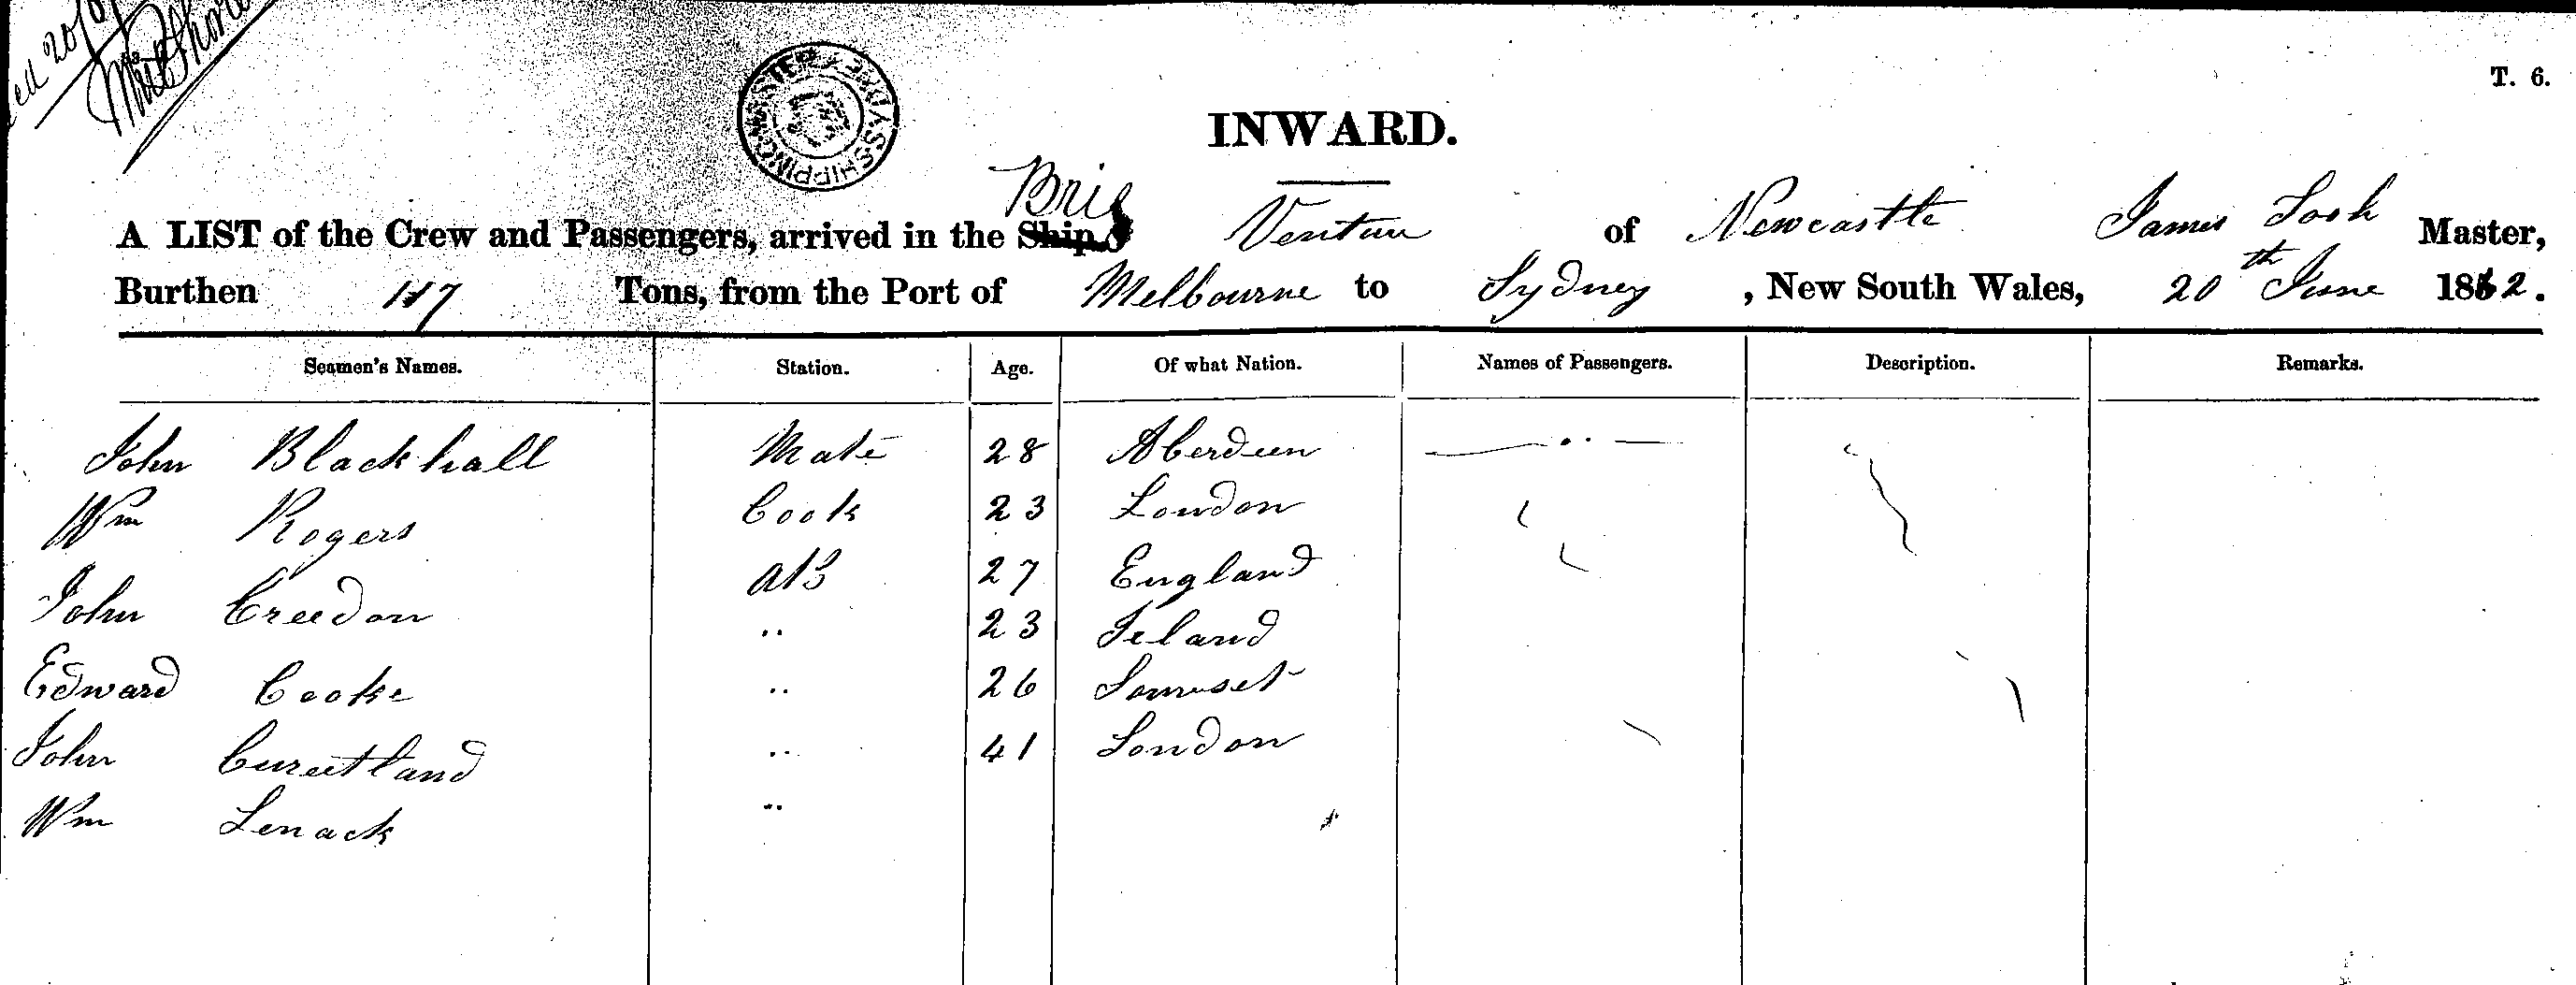 T. 6.
INWARD.
Brig
A LIST of the Crew and Passengers, arrived in the Ship Venture of Newcastle James Master,
Burthen 117 Tons, from the Port of Melbourne to Sydney, New South Wales, 20th June 1862.
Seamen's Names. Station. Age. Of what Nation. Names of Passengers. Description. Remarks.
John Blackhall Mate 28 Aberdeen
Wm Rogers Cook 23 London
John Creedon AB 27 England
Edward Cooke .. 23 Ieland
John .. 26 Somerset
Wm Lenack .. 41 London